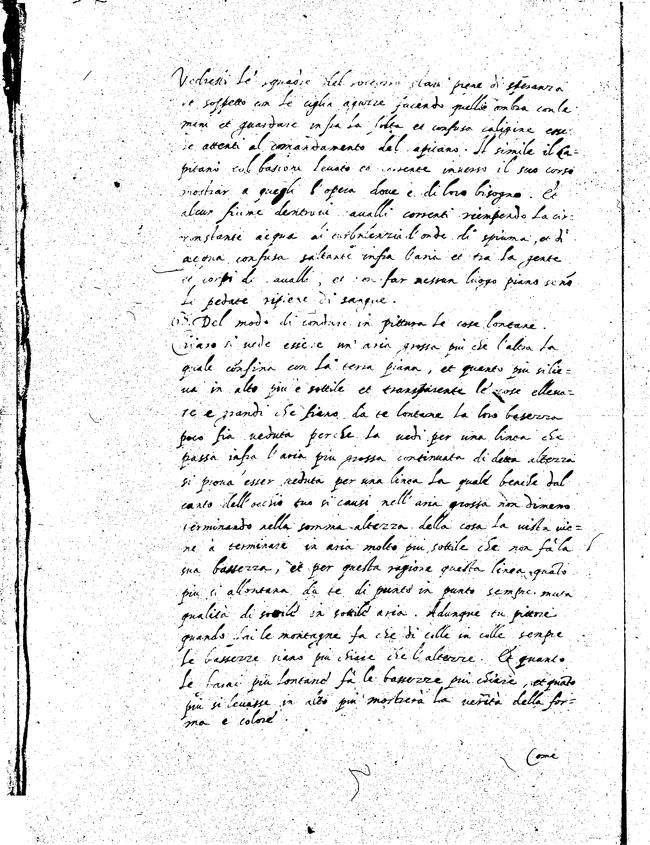 Vedresti le squadre del soccorso stari piene di speranza
et sospetto con le ciglia aguzze facendo quelli ombra con le
mani et guardare infra la folta et confusa caligine esse
re attenti al comandamento del capitano. Il simile il Ca=
pitano col bastone levato et corrente inverso il suo corso
mostrar a quegli l'opera dove e di loro bisogno. Et
alcun fiume dentrovi cavalli correnti riempendo la cir
constante acqua di turbulenzia d'onde di spiuma, et di
acqua confusa saltante infra l'aria et tra la gente
et corpi di cavalli, et non far nessun luogo piano se nõ
le pedate ripiene di sangue.
Del modo di condure in pittura le cose lontane.
Chiaro si vede essere un' aria grossa più che l'altra la
quale confina con la terra piana, et quanto più si lie=
va in alto più è sottile et transparente le cose elleva=
te e grandi che siano da te lontane la loro bassezza
poco sia veduta perche la vedi per una linea che
passa infra l'aria più grossa continuata di detta altezza
si prova esser veduta per una linea la quale benche dal
canto dell'occhio tuo si causi nell'aria grossa non dimeno
terminando nella somma altezza della cosa la vista vie=
ne à terminare in aria molto più sottile che non fa la
sua bassezza, et per questa ragione questa linea quãto
più si allontana da te di punto in punto sempre muta
qualità di sottile in sottile aria. Adunque tu pittore
quando fai le montagne fa che di colle in colle sempre
le bassezze siano più chiare che l'altezze. Et quanto
le farai più lontane fà le bassezze più chiare, et quãto
più si levasse in alto più mostrerà la verità della for=
ma e colore
Come